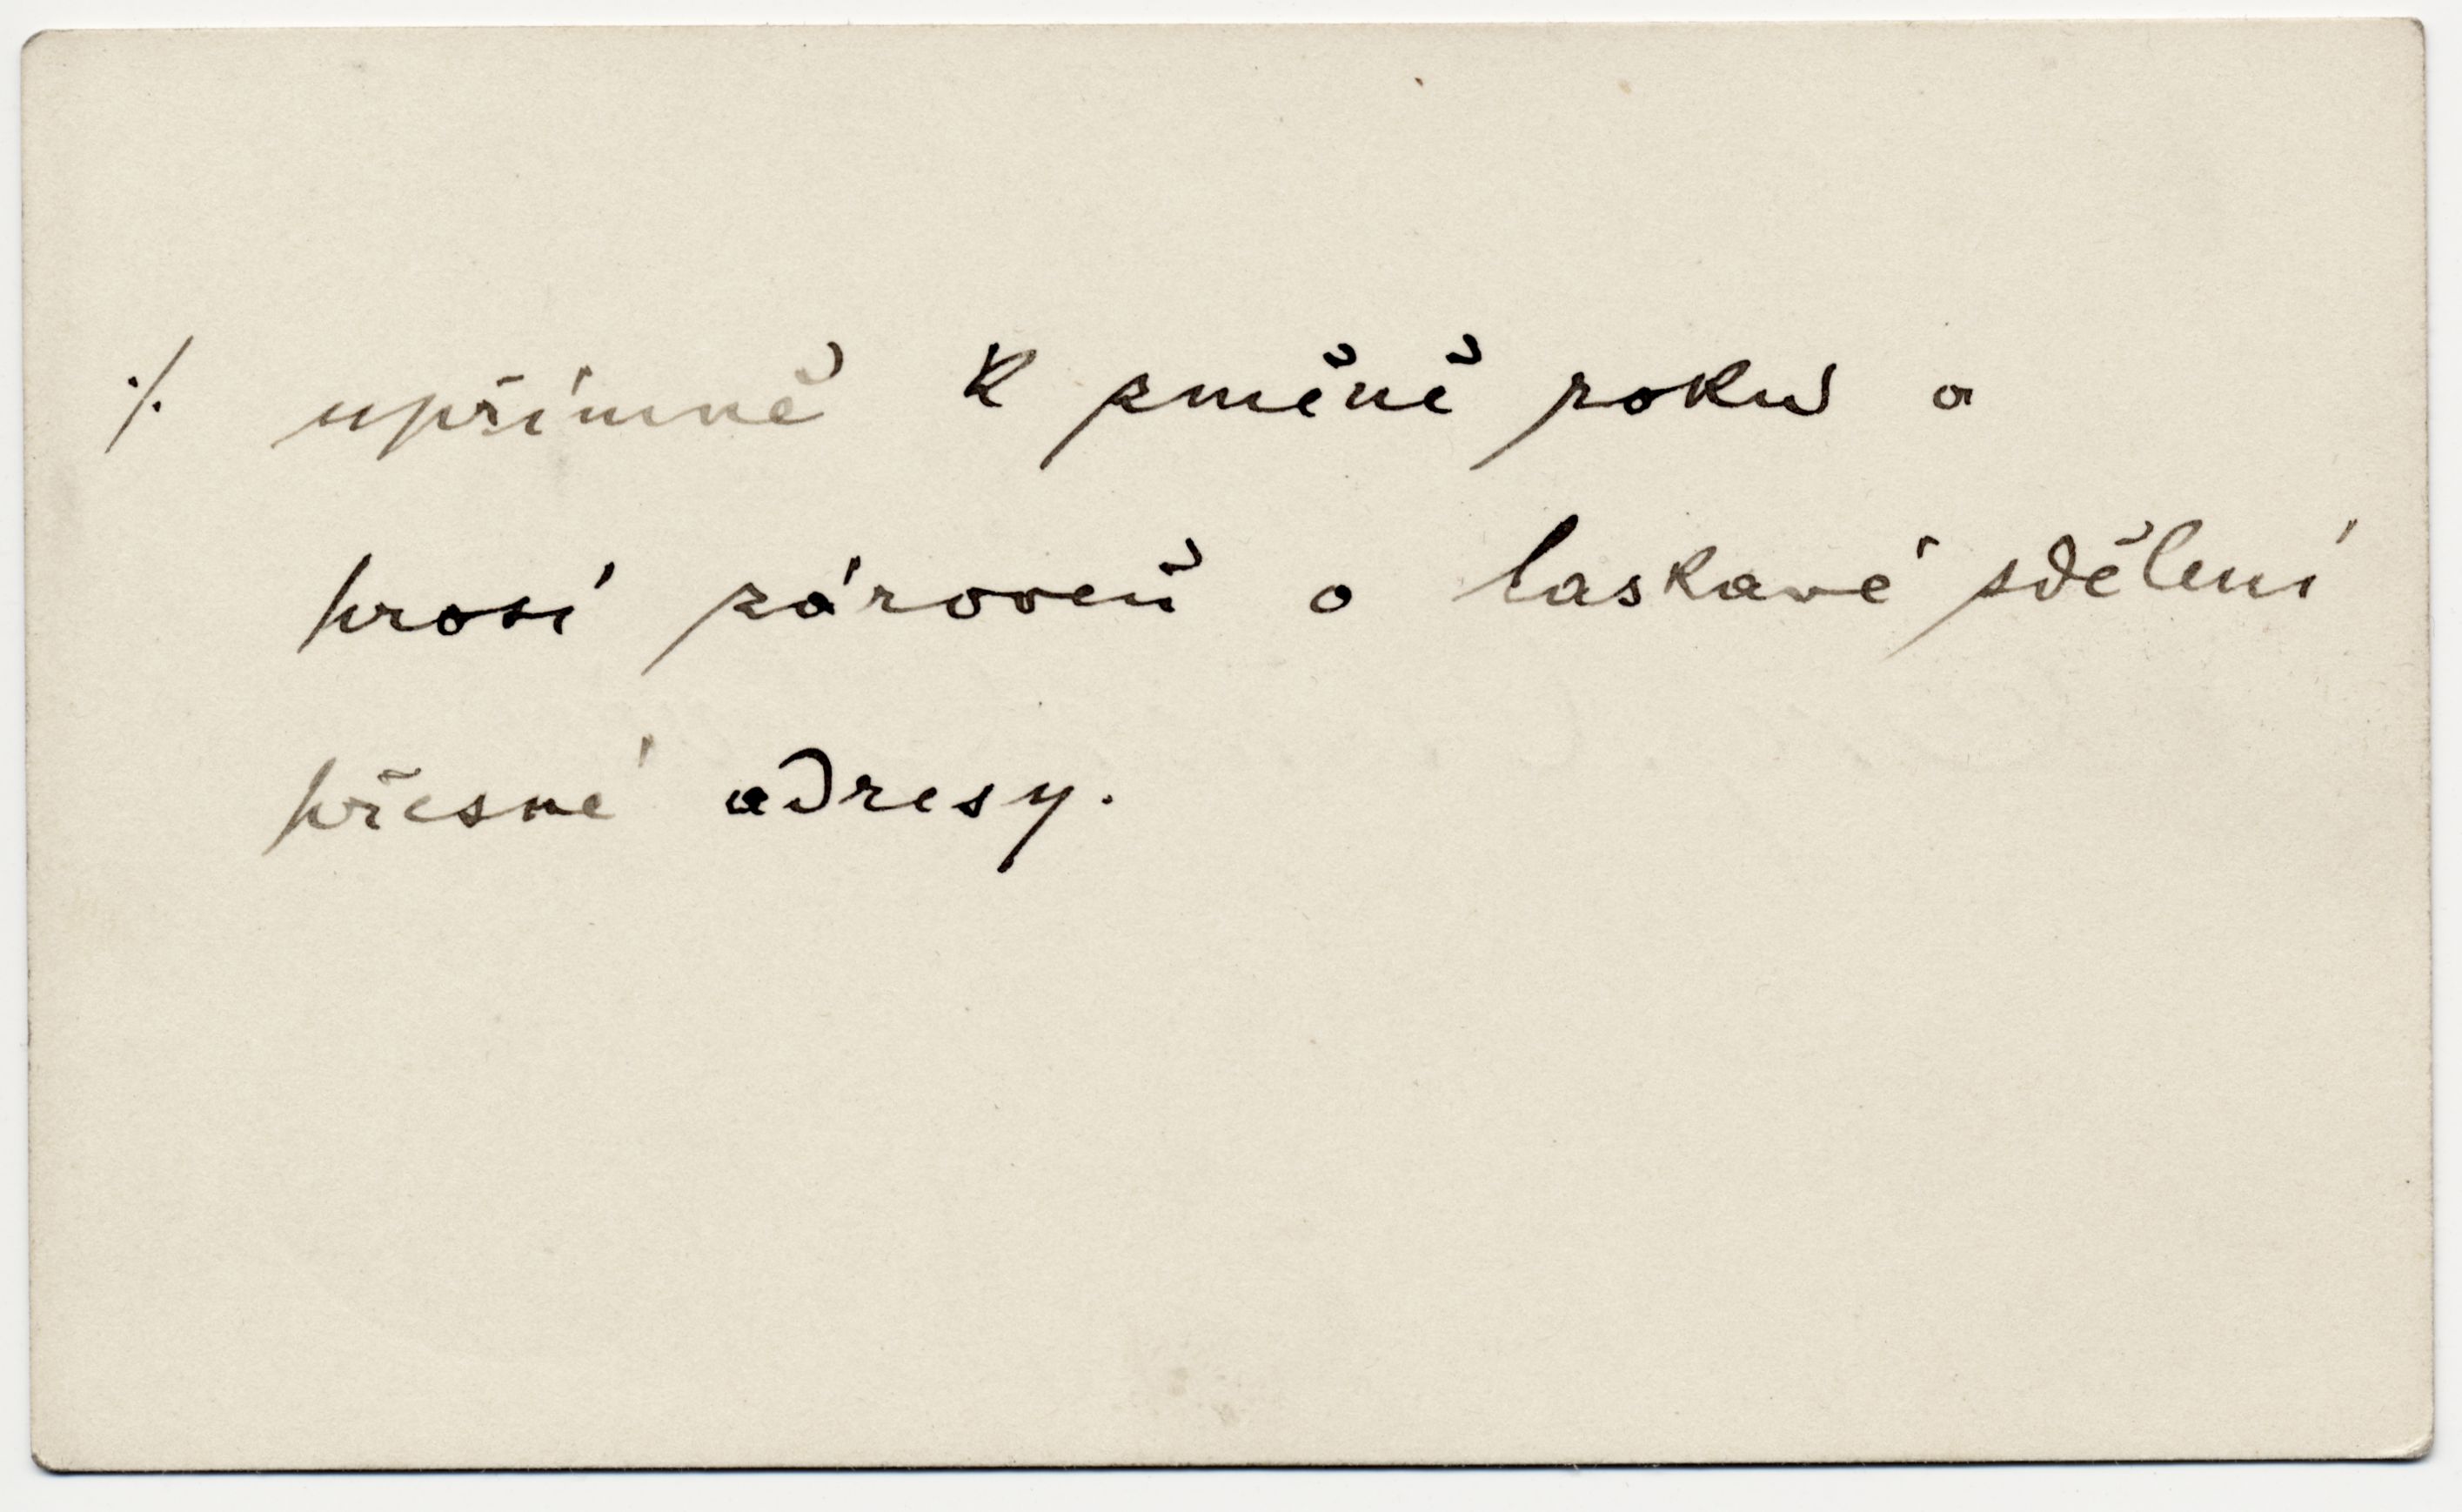 ./. upřímně k změně roku a
prosí zároveň o laskavé sdělení
přesné adresy.